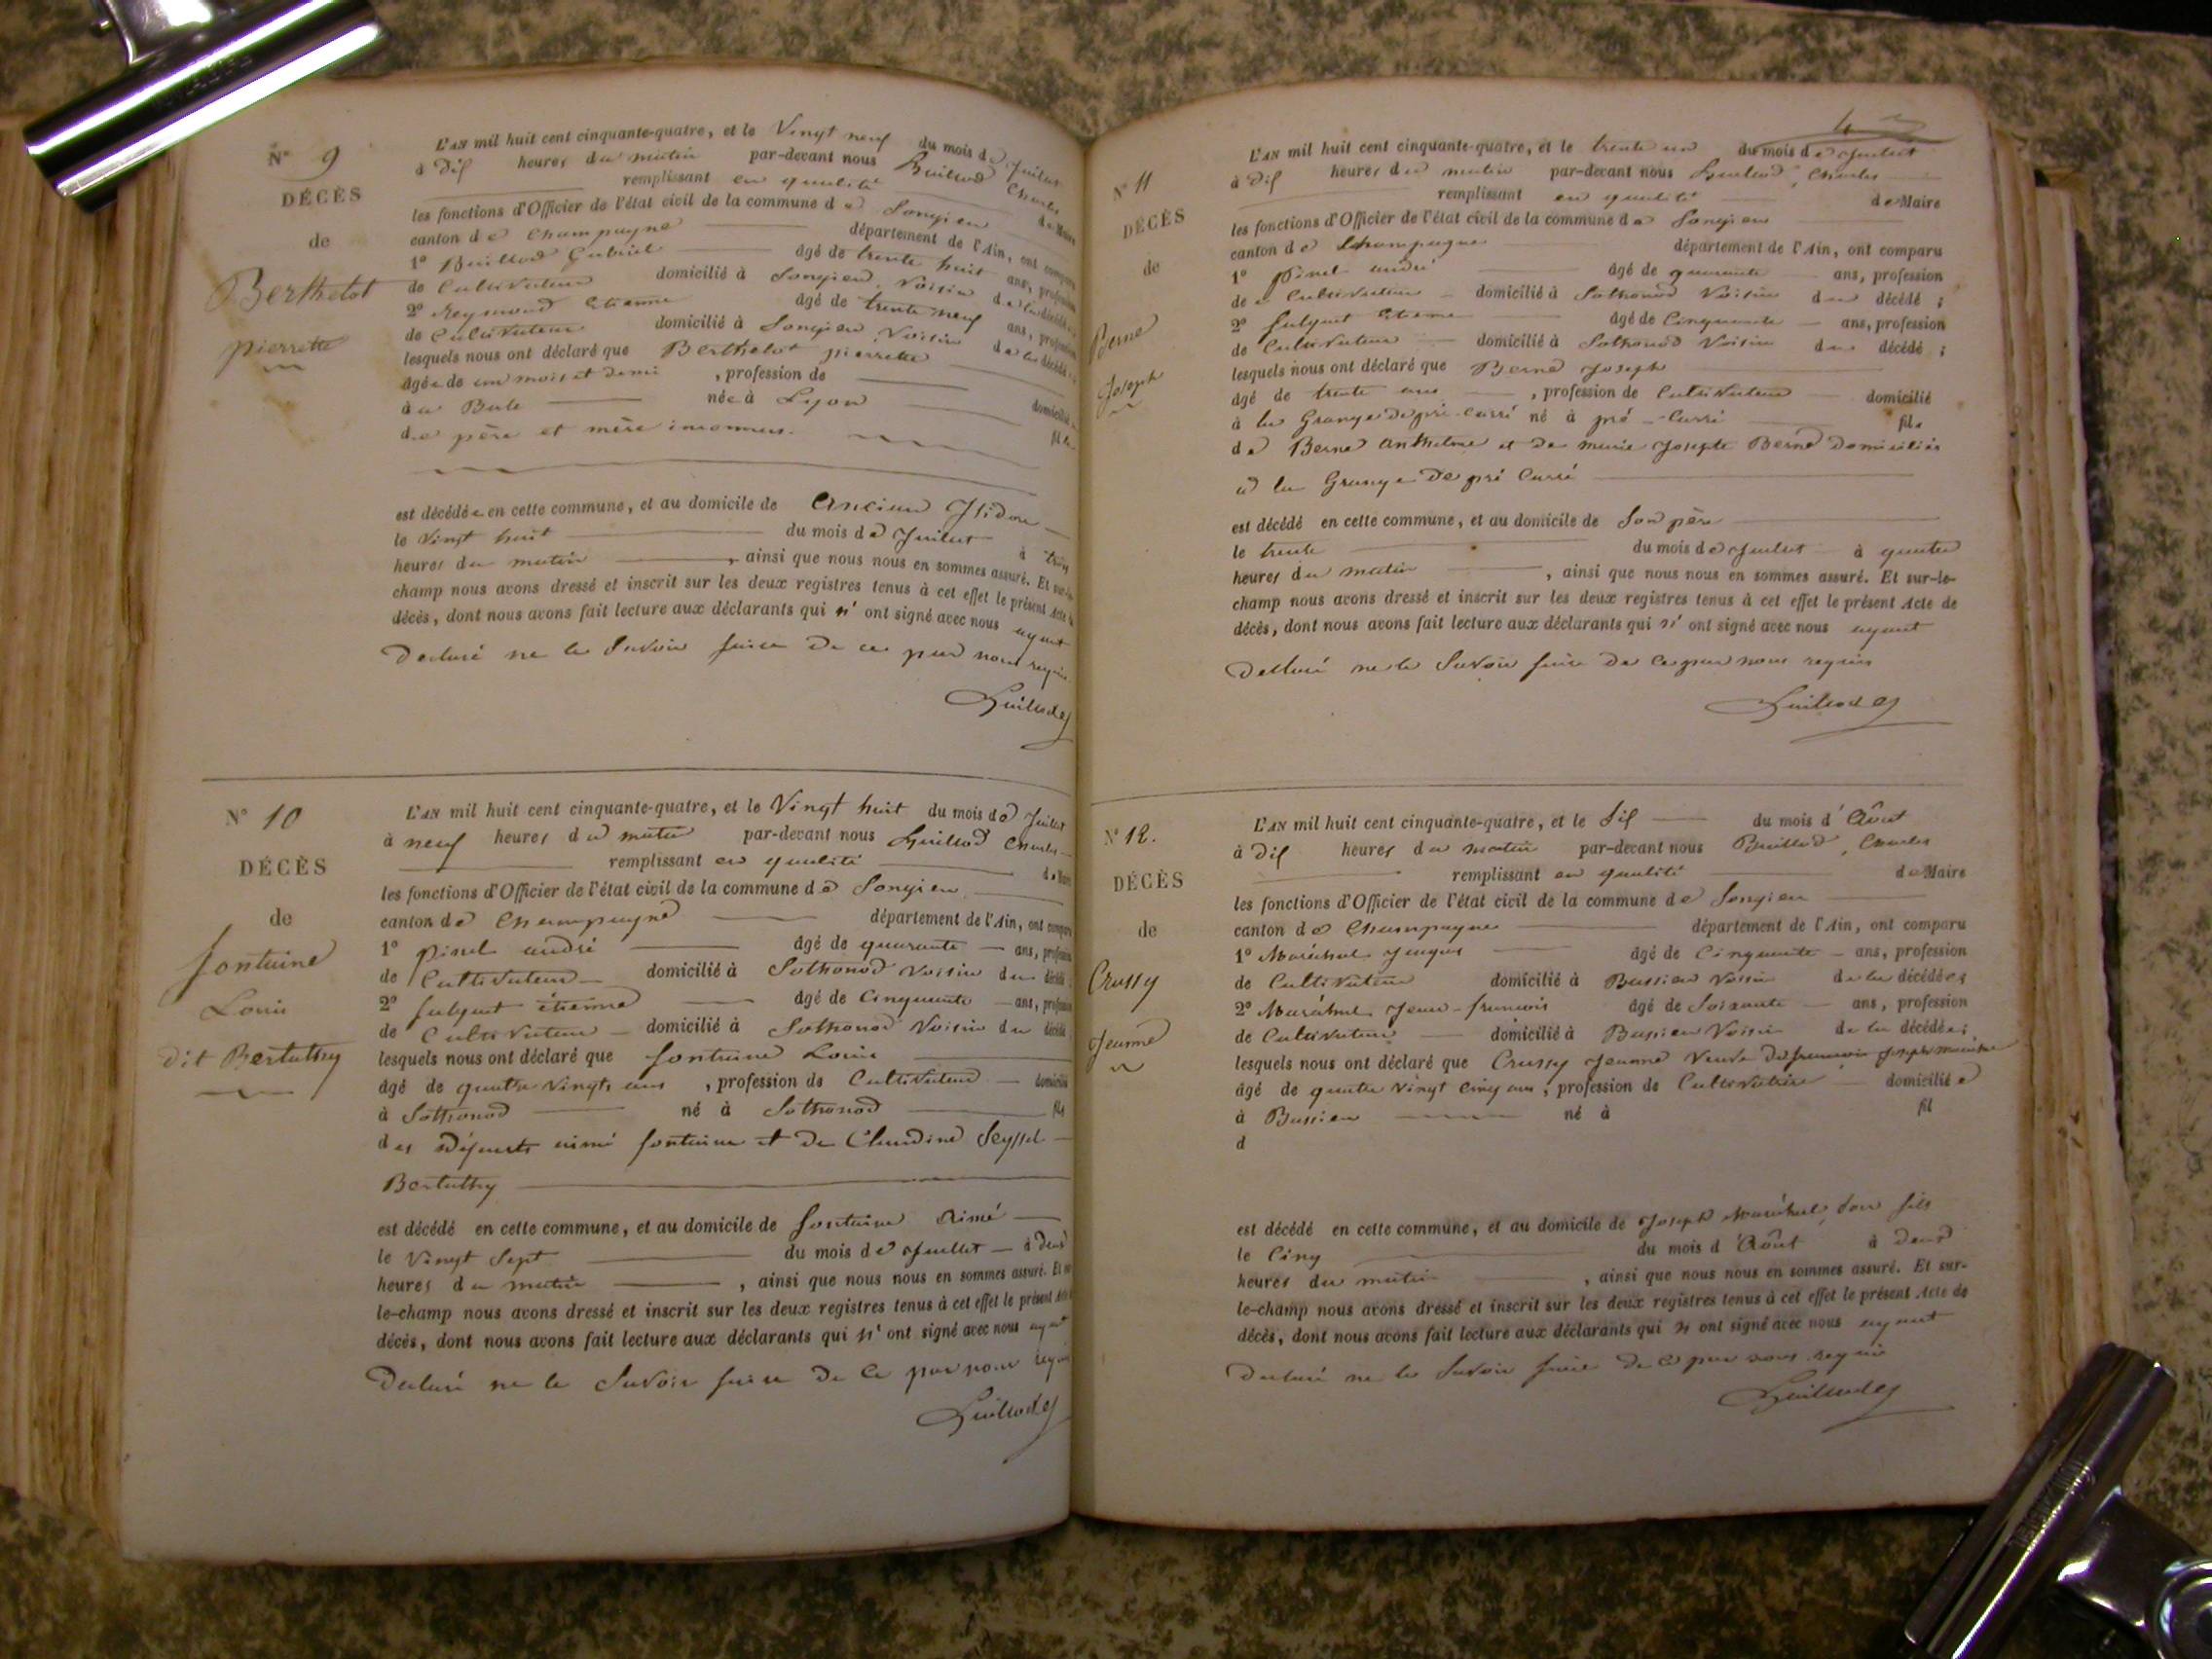 N° 9
DÉCÈS
de
Berthelot
pierrette
L'AN mil huit cent cinquante-quatre, et le Vingt neuf du mois de Juillet
à dix heures du matin par-devant nous Guillod Charles
remplissant en qualité de Maire
les fonctions d'Officier de l'état civil de la commune de Songieu
canton de Champagne département de l'Ain, ont comparu
1° Guillod Gabriel âgé de trente huit ans, profession
de Cultivateur domicilié à Songieu Voisin de la décédée
2° Reymond Etienne âgé de trente neuf ans, profession
de Cultivateur domicilié à Songieu Voisin de la décédée
lesquels nous ont déclaré que Berthelot pierrette
âgée de un mois et demi , profession de
à née à Lyon domiciliée
de père et mère inconnus. fille
est décédée en cette commune, et au domicile de Ancian Isidore
le Vingt huit du mois de Juillet à
heures du matin , ainsi que nous nous en sommes assuré. Et sur-le-
champ nous avons dressé et inscrit sur les deux registres tenus à cet effet le présent Acte de
décès, dont nous avons fait lecture aux déclarants qui n' ont signé avec nous ayant
Declaré ne le Savoir faire de ce par nous requis
Guillod
N° 10
DÉCÈS
de
fontaine
Louis
dit Bertathy
L'AN mil huit cent cinquante-quatre, et le Vingt huit du mois de Juillet
à neuf heures du matin par-devant nous Guillod Charles
remplissant en qualité de Maire
les fonctions d'Officier de l'état civil de la commune de Songieu
canton de Champagne département de l'Ain, ont comparu
1° pinel andré âgé de quarante ans, profession
de Cultivateur domicilié à Sothonod Voisin du décédé
2° fulquet étienne âgé de Cinquante ans, profession
de Cultivateur domicilié à Sothonod Voisin du décédé
lesquels nous ont déclaré que fontaine Louis
âgé de quatre Vingts ans , profession de Cultivateur domicilié
à Sothonod né à Sothonod fils
des Défunts aimé fontaine et de Claudine Seyssel
Bertathy
est décédé en cette commune, et au domicile de fontaine Aimé
le Vingt Sept du mois de Juillet à deux
heures du matin , ainsi que nous nous en sommes assuré. Et sur-
le-champ nous avons dressé et inscrit sur les deux registres tenus à cet effet le présent Acte de
décès, dont nous avons fait lecture aux déclarants qui n' ont signé avec nous ayant
Declaré ne le Savoir faire de ce par nous requis
Guillod
N° 11
DÉCÈS
de
Berne
Joseph
L'AN mil huit cent cinquante-quatre, et le trente un du mois de Juillet
à dix heures du matin par-devant nous Guillod, Charles
remplissant en qualité de Maire
les fonctions d'Officier de l'état civil de la commune de Songieu
canton de Champagne département de l'Ain, ont comparu
1° pinel andré âgé de quarante ans, profession
de Cultivateur domicilié à Sothonod Voisin du décédé ;
2° fulquet étienne âgé de Cinquante ans, profession
de Cultivateur domicilié à Sothonod Voisin du décédé ;
lesquels nous ont déclaré que Berne Joseph
âgé de trente ans , profession de Cultivateur domicilié
à la Grange de pré-Carré né à pré-Carré fils
de Berne Anthelme et de marie Josephte Berne Domiciliés
à la Grange de pré Carré
est décédé en cette commune, et au domicile de Son père
le trente du mois de Juillet à quatre
heures du matin , ainsi que nous nous en sommes assuré. Et sur-le-
champ nous avons dressé et inscrit sur les deux registres tenus à cet effet le présent Acte de
décès, dont nous avons fait lecture aux déclarants qui n' ont signé avec nous ayant
Declaré ne le Savoir faire de ce par nous requis
Guillod
N° 12.
DÉCÈS
de
Crussy
Jeanne
L'AN mil huit cent cinquante-quatre, et le Six du mois d'Août
à dix heures du matin par-devant nous Guillod, Charles
remplissant en qualité de Maire
les fonctions d'Officier de l'état civil de la commune de Songieu
canton de Champagne département de l'Ain, ont comparu
1° Maréchal Jacques âgé de Cinquante ans, profession
de Cultivateur domicilié à Bassieu Voisin de la décédée
2° Maréchal Jean-francois âgé de Soixante ans, profession
de Cultivateur domicilié à Bassieu Voisin de la décédée ;
lesquels nous ont déclaré que Crussy Jeanne Veuve de Joseph maréchal
âgé de quatre Vingt Cinq ans , profession de Cultivatrice domiciliée
à Bassieu né à fil
d
est décédé en cette commune, et au domicile de Joseph Maréchal, Son fils
le Cinq du mois d'Août à deux
heures du matin , ainsi que nous nous en sommes assuré. Et sur-
le-champ nous avons dressé et inscrit sur les deux registres tenus à cet effet le présent Acte de
décès, dont nous avons fait lecture aux déclarants qui n' ont signé avec nous ayant
Declaré ne le Savoir faire de ce par nous requis
Guillod